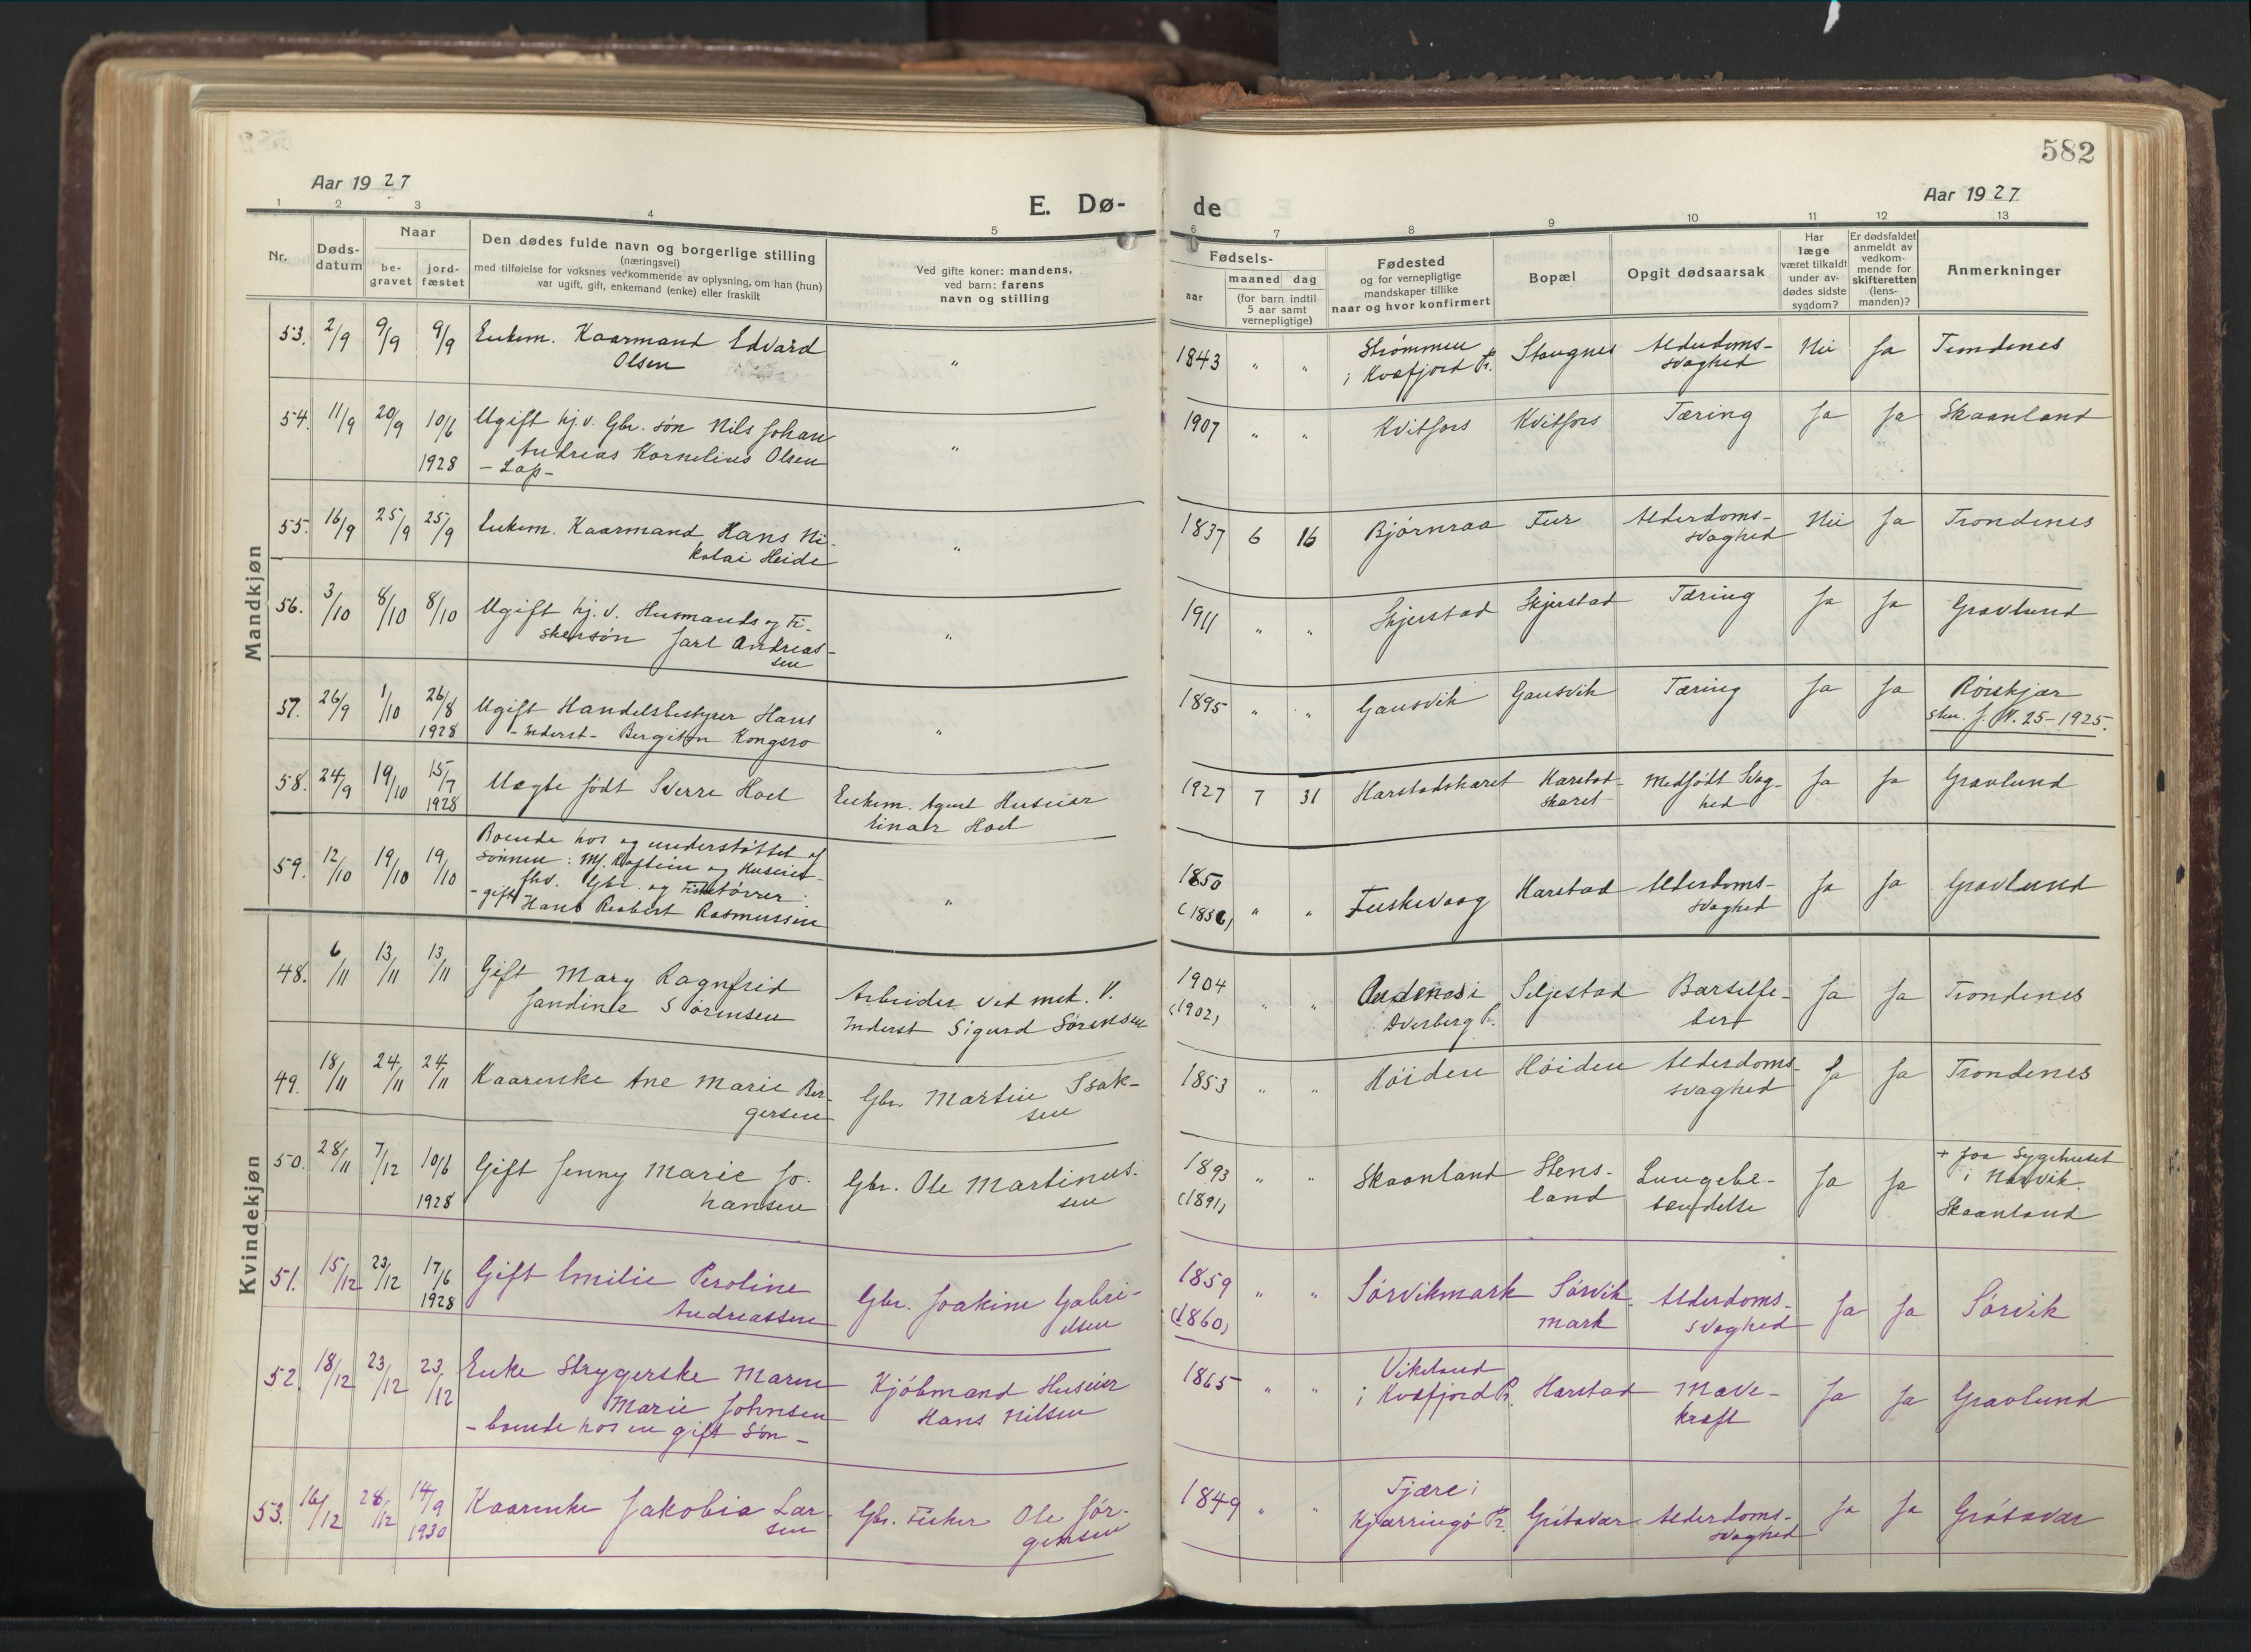 582
Aar 1927
E. Dø-
de
Aar 1927
1 2 3 4 5 6 7 8 9 10 11 12 13
Nr.
Døds-
datum
Naar
be-
gravet
jord-
fæstet
Den dødes fulde navn og borgerlige stilling
(næringsvei)
med tilføielse for voksnes vedkommende av oplysning, om han (hun)
var ugift, gift, enkemand (enke) eller fraskilt
Ved gifte koner: mandens,
ved barn: farens
navn og stilling
Fødsels-
aar
maaned dag
(for barn indtil
5 aar samt
vernepligtige)
Fødested
og for vernepligtige
mandskaper tillike
naar og hvor konfirmert
Bopæl
Opgit dødsaarsak
Har
læge
været tilkaldt
under av-
dødes sidste
sygdom?
Er dødsfaldet
anmeldt av
vedkom-
mende for
skifteretten
(lens-
manden)?
Anmerkninger
Mandkjøn
53. 2/9 9/9 9/9 Enkem. Kaarmand Edvard
Olsen
"
1843 " " Strømmen
i Kvæfjord Pr. Stangnes Alderdoms-
svaghed Nei Ja Trondenes
54. 11/9 20/9 10/6
1928
Ugift hj. v. Gbr. søn Nils Johan
Andreas Kornelius Olsen
- Lap -
"
1907 " " Kvitfors Kvitfors Tæring Ja Ja Skaanland
55. 16/9 25/9 25/9 Enkem. Kaarmand Hans Ni-
kolai Heide
"
1837 6 16 Bjørnraa Fur Alderdoms-
svaghed Nei Ja Trondenes
56. 3/10 8/10 8/10 Ugift hj. v. Husmands og Fi-
skersøn Jarl Andreas-
sen
"
1911 " " Skjerstad Skjerstad Tæring Ja Ja Gravlund
57. 26/9 1/10 26/8
1928
Ugift Handelsbestyrer Hans
- Inderst - Bergiton Kongsro
"
1895 " " Gausvik Gausvik Tæring Ja Ja Rørskjær
25-1925.
58. 24/9 19/10 15/7
1928
Uægte født Sverre Hoel
Enkem. Agent Huseier
Einar Hoel
1927 7 31 Harstadskaret Harstad-
skaret Medfødt Svag-
hed Ja Ja Gravlund
59. 12/10 19/10 19/10 Boende hos og understøttet af
Sønnen: Kaptein og Huseier
fhv. Gbr. og Fisketørrer:
- gift - Hans Reabert Rasmussen
"
1850
(1836) " " Fuskevaag Harstad Alderdoms-
svaghed Ja Ja Gravlund
Kvindekjøn
48. 6/11 13/11 13/11 Gift Mary Ragnfrid
Jandine Sørensen
Arbeider ved mek. V.
Inderst Sigurd Sørensen
1904
(1902) " " Andenes i
Dverberg Pr. Seljestad Barselfe-
ber Ja Ja Trondenes
49. 18/11 24/11 24/11 Kaarenke Ane Marie Ber-
gersen
Gbr. Martin Isak-
sen
1853 " " Høiden Høiden Alderdoms-
svaghed Ja Ja Trondenes
50. 28/11 7/12 10/6
1928
Gift Jenny Marie Jo-
hansen
Gbr. Ole Martinus-
sen
1893
(1891) " " Skaanland Stens-
land Lungebe-
tændelse Ja Ja + paa Sygehuset
i Narvik.
Skaanland
51. 15/12 23/12 17/6
1928
Gift Emilie Peroline
Andreassen
Gbr. Joakim Gabri-
elsen
1859
(1860) " " Sørvikmark Sørvik-
mark Alderdoms-
svaghed Ja Ja Sørvik
52. 18/12 23/12 23/12 Enke Strygerske Maren
Marie Johnsen
- boende hos en gift Søn -
Kjøbmand Huseier
Hans Nilsen
1865 " " Vikeland
i Kvæfjord Pr. Harstad Mave-
kræft Ja Ja Gravlund
53. 16/12 28/12 14/9
1930
Kaarenke Jakobia Lar-
sen
Gbr. Fisker Ole Jør-
gensen
1849 " " Tjære i
Kjærringø Pr. Grøtavær Alderdoms-
svaghed Ja Ja Grøtavær